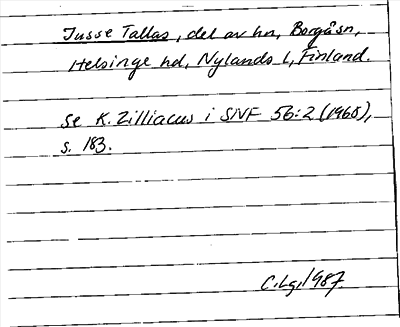 Jusse Tallas, del av hn, Borgåsn,
Helsinge hd, Nylands l, Finland.
Se K. Zilliacus i SNF 56:2 (1965),
s. 183.
C.Lg. 1987.